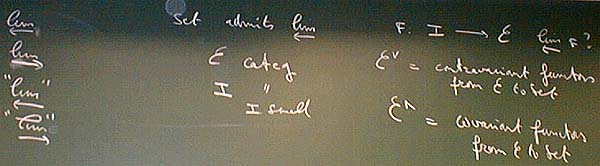 lim ←
lim →
"lim" ←
"lim" →
Set admits lim ←
ℰ categ
I "
I small
F: I → ℰ lim ← F?
ℰ^∨ = contravariant functors
from ℰ to Set
ℰ^∧ = covariant functors
from ℰ to Set